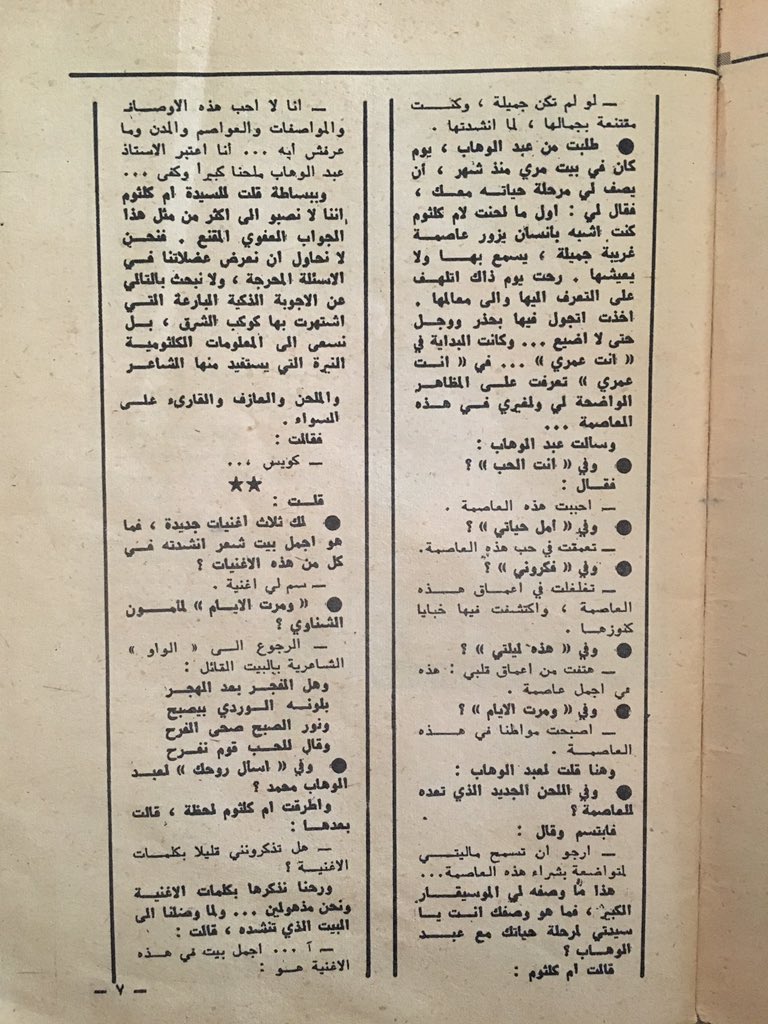 — لو لم تكن جميلة ، وكنت
مقتنعة بجمالها ، لما انشدتها .
● طلبت من عبد الوهاب ، يوم
كان في بيت مري منذ شهر ، أن
يصف لي مرحلة حياته معك ،
فقال لي : اول ما لحنت لام كلثوم
كنت اشبه بانسان يزور عاصمة
غريبة جميلة ، يسمع بها ولا
يعيشها . رحت يوم ذاك اتلهف
على التعرف اليها والى معالمها .
اخذت اتجول فيها بحذر ووجل
حتى لا اضيع ... وكانت البداية في
« انت عمري » ... في « انت
عمري » تعرفت على المظاهر
الواضحة لي ولغيري في هذه
العاصمة ...
وسالت عبد الوهاب :
● وفي « انت الحب » ؟
فقال :
— احببت هذه العاصمة .
● وفي « امل حياتي » ؟
— تعمقت في حب هذه العاصمة.
● وفي « فكروني » ؟
— تغلغلت في اعماق هذه
العاصمة ، واكتشفت فيها خبايا
كنوزها .
● وفي « هذه ليلتي » ؟
— هتفت من أعماق قلبي : هذه
هي اجمل عاصمة .
● وفي « ومرت الايام » ؟
— اصبحت مواطنا في هذه
العاصمة .
وهنا قلت لعبد الوهاب :
● وفي اللحن الجديد الذي تعده
للعاصمة ؟
فابتسم وقال :
— ارجو ان تسمح ماليتي
المتواضعة بشراء هذه العاصمة...
هذا ما وصفه لي الموسيقار
الكبير ، فما هو وصفك انت يا
سيدتي لمرحلة حياتك مع عبد
الوهاب ؟
قالت ام كلثوم :
— انا لا احب هذه الاوصاف
والمواصفات والعواصم والمدن وما
عرفش ايه ... أنا اعتبر الاستاذ
عبد الوهاب ملحنا كبيرا وكفى ...
وببساطة قلت للسيدة ام كلثوم
اننا لا نصبو الى اكثر من مثل هذا
الجواب العفوي المقنع . فنحن
لا نحاول ان نعرض عضلاتنا في
الاسئلة المحرجة ، ولا نبحث بالتالي
عن الاجوبة الذكية البارعة التي
اشتهرت بها كوكب الشرق ، بل
نسعى الى المعلومات الكلثومية
النيرة التي يستفيد منها الشاعر
والملحن والعازف والقارىء على
السواء .
فقالت :
— كويس ...
★★
قلت :
● لك ثلاث اغنيات جديدة ، فما
هو اجمل بيت شعر انشدته في
كل من هذه الاغنيات ؟
— سم لي اغنية .
● « ومرت الايام » لمامون
الشناوي ؟
— الرجوع الى « الواو »
الشاعرية بالبيت القائل :
وهل الفجر بعد الهجر
بلونه الوردي بيصبح
ونور الصبح صحى الفرح
وقال للحب قوم نفرح
● وفي « اسال روحك » لعبد
الوهاب محمد ؟
واطرقت ام كلثوم لحظة ، قالت
بعدها :
— هل تذكرونني قليلا بكلمات
الاغنية ؟
ورحنا نذكرها بكلمات الاغنية
ونحن مذهولين ... ولما وصلنا الى
البيت الذي تنشده ، قالت :
— آ ... اجمل بيت في هذه
الاغنية هو :
— ٧ —